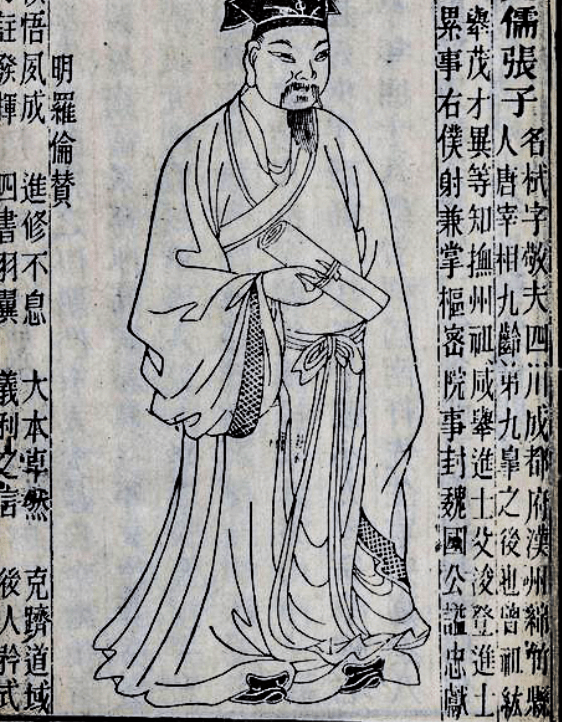 儒張子
名栻字敬夫四川成都府漢州綿竹縣
人唐宰相九齡弟九臯之後也曾祖紘
舉茂才異等知撫州祖咸舉進士父浚登進士
累事右僕射兼掌樞密院事封魏國公諡忠獻
明羅倫贊
悟夙成 進修不息 大本卓然 克躋道域
註發揮 四書羽翼 義利之言 後人矜式